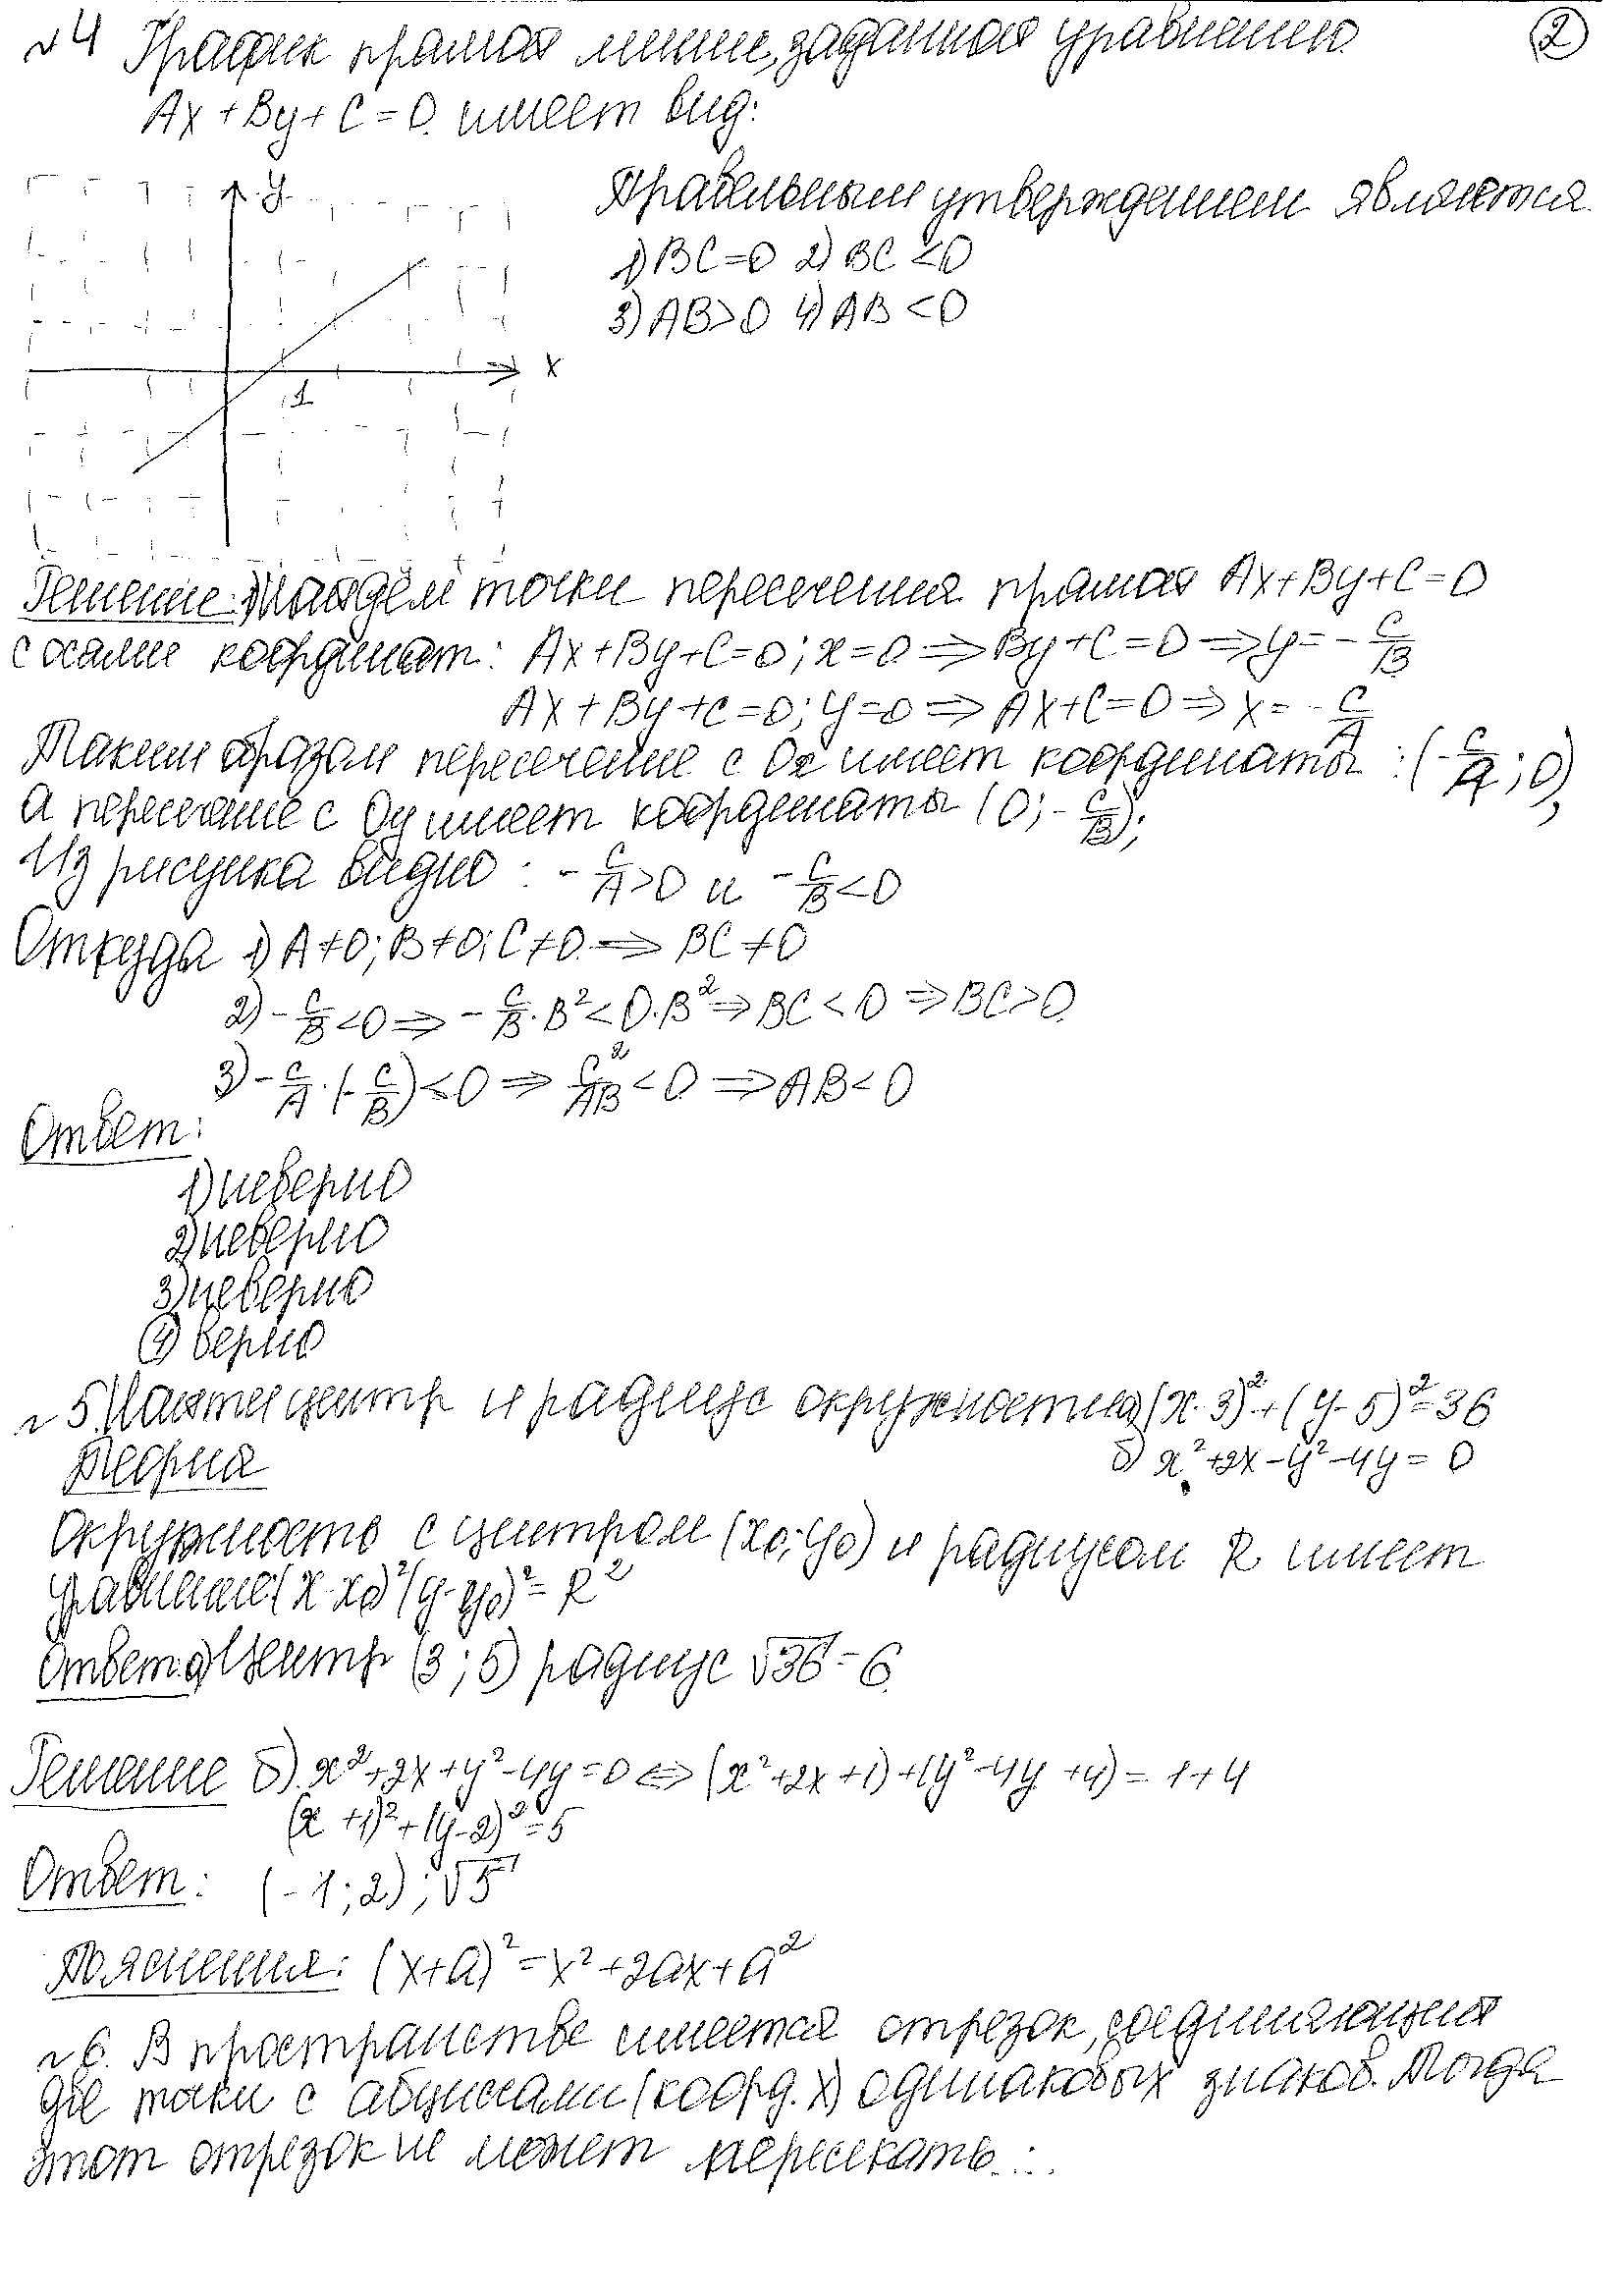 №4 График прямой линии, заданной уравнением
2
Ax + By + C = 0 имеет вид:
y
Правильным утверждением является
1) BC=0 2) BC<0
3) AB>0 4) AB<0
x
1
Решение: Найдем точки пересечения прямой Ax+By+C=0
с осями координат: Ax+By+C=0; x=0 ⇒ By+C=0 ⇒ y=-C/B
Ax+By+C=0; y=0 ⇒ Ax+C=0 ⇒ x=-C/A
Таким образом пересечение с Ox имеет координаты: (-C/A; 0),
а пересечение с Oy имеет координаты (0; -C/B);
Из рисунка видно: -C/A>0 и -C/B<0
Откуда 1) A≠0; B≠0; C≠0 ⇒ BC≠0
2) -C/B<0 ⇒ -C/B·B²<0·B² ⇒ BC<0 ⇒ BC>0
3) -C/A·(-C/B)<0 ⇒ C²/AB<0 ⇒ AB<0
Ответ:
1) неверно
2) неверно
3) неверно
4) верно
№5. Найти центр и радиус окружности а) (x-3)²+(y-5)²=36
б) x²+2x-y²-4y=0
Теория
Окружность с центром (x₀; y₀) и радиусом R имеет
уравнение (x-x₀)²(y-y₀)²=R²
Ответ: а) Центр (3; 5) радиус √36=6
Решение б) x²+2x+y²-4y=0 ⇔ (x²+2x+1)+(y²-4y+4)=1+4
(x+1)²+(y-2)²=5
Ответ: (-1; 2); √5
Пояснения: (x+a)²=x²+2ax+a²
№6. В пространстве имеется отрезок, соединяющий
две точки с абциссами (коорд. X) одинаковых знаков. Тогда
этот отрезок не может пересекать...